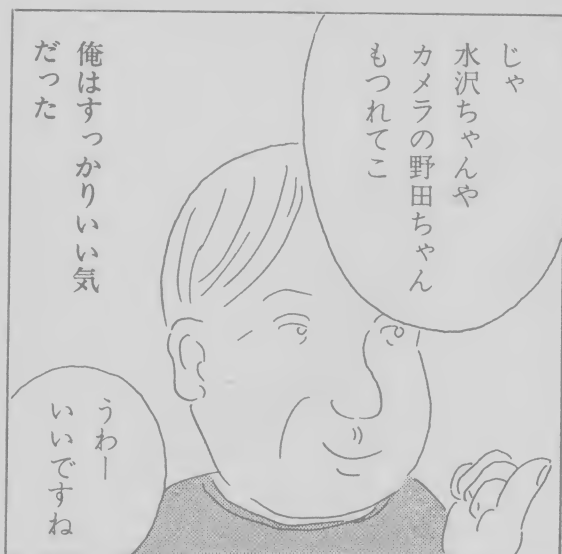 じゃ
水沢ちゃんや
カメラの野田ちゃん
もつれてこ
俺はすっかりいい気
だった
うわー
いいですね